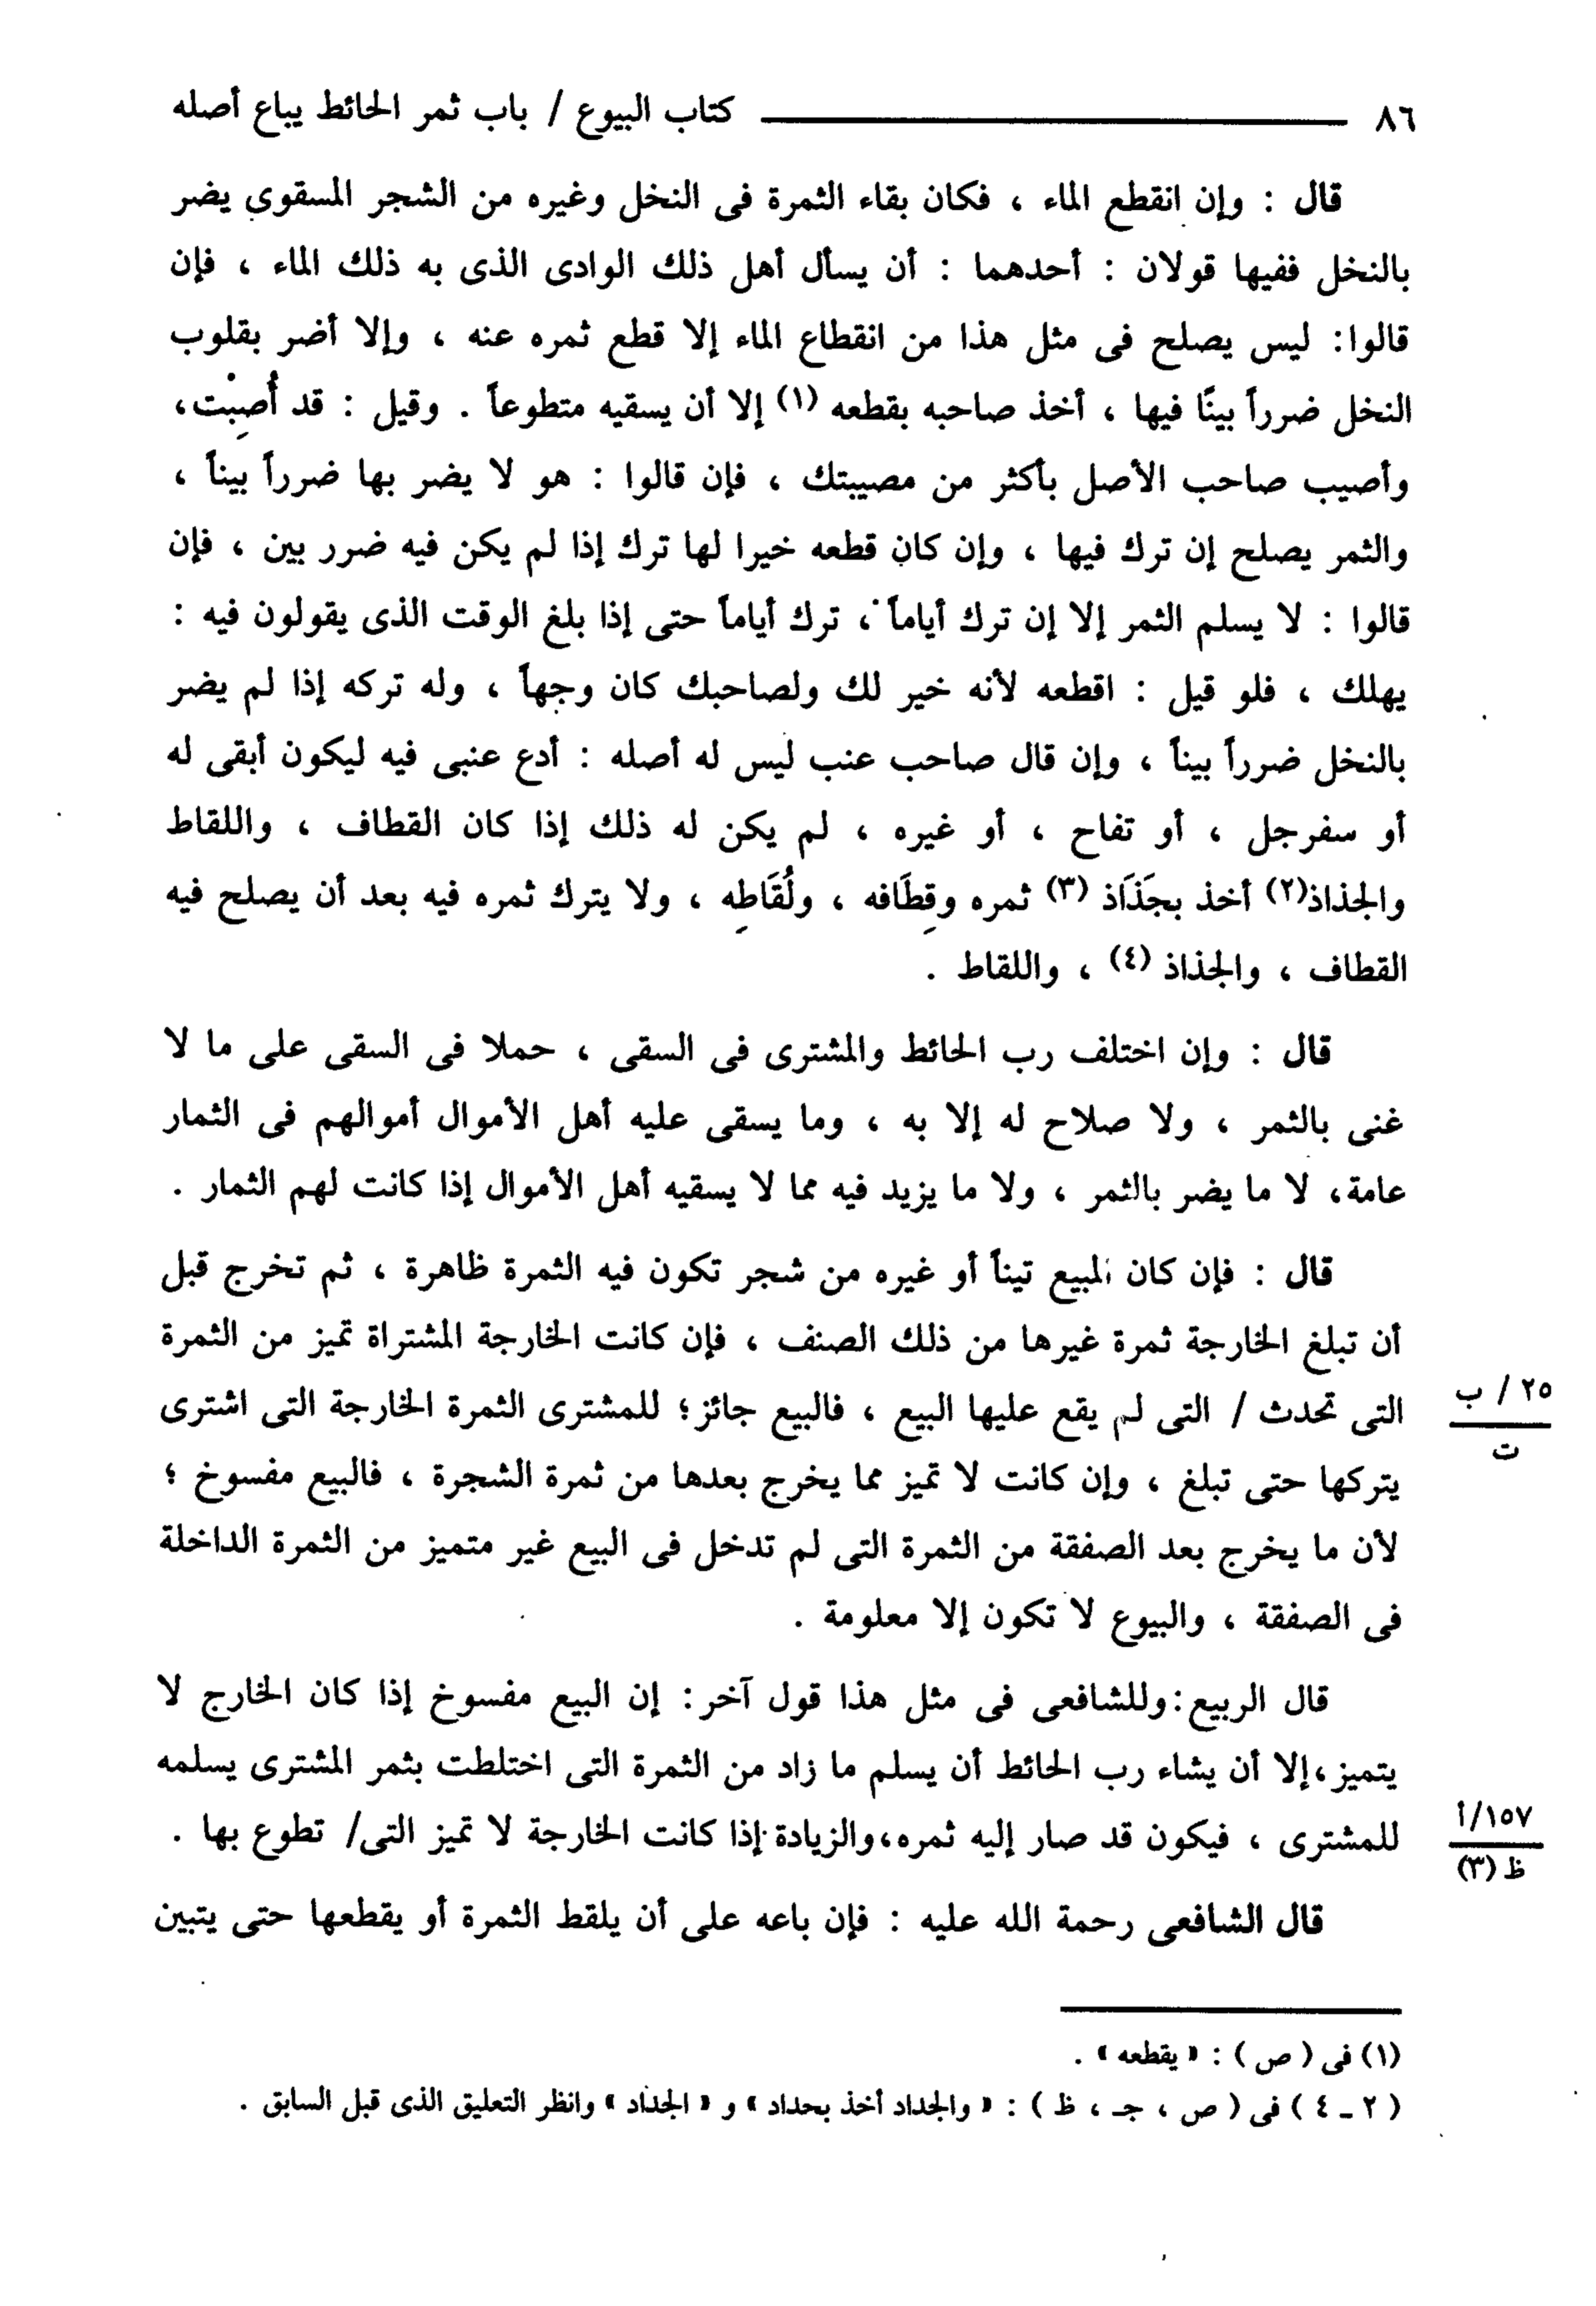 ٨٦ كتاب البيوع / باب ثمر الحائط يباع أصله
قال : وإن انقطع الماء ، فكان بقاء الثمرة فى النخل وغيره من الشجر المسقوي يضر
بالنخل ففيها قولان : أحدهما : أن يسأل أهل ذلك الوادى الذى به ذلك الماء ، فإن
قالوا: ليس يصلح فى مثل هذا من انقطاع الماء إلا قطع ثمره عنه ، وإلا أضر بقلوب
النخل ضرراً بينًا فيها ، أخذ صاحبه بقطعه (١) إلا أن يسقيه متطوعاً . وقيل : قد أُصِبْت،
وأصيب صاحب الأصل بأكثر من مصيبتك ، فإن قالوا : هو لا يضر بها ضرراً بيناً ،
والثمر يصلح إن ترك فيها ، وإن كان قطعه خيرا لها ترك إذا لم يكن فيه ضرر بين ، فإن
قالوا : لا يسلم الثمر إلا إن ترك أياماً ، ترك أياماً حتى إذا بلغ الوقت الذى يقولون فيه :
يهلك ، فلو قيل : اقطعه لأنه خير لك ولصاحبك كان وجهاً ، وله تركه إذا لم يضر
بالنخل ضرراً بيناً ، وإن قال صاحب عنب ليس له أصله : أدع عنبى فيه ليكون أبقى له
أو سفرجل ، أو تفاح ، أو غيره ، لم يكن له ذلك إذا كان القطاف ، واللقاط
والجذاذ(٢) أخذ بجَذَاذ (٣) ثمره وقِطَافه ، ولُقَاطِه ، ولا يترك ثمره فيه بعد أن يصلح فيه
القطاف ، والجذاذ (٤) ، واللقاط .
قال : وإن اختلف رب الحائط والمشترى فى السقى ، حملا فى السقى على ما لا
غنى بالثمر ، ولا صلاح له إلا به ، وما يسقى عليه أهل الأموال أموالهم فى الثمار
عامة، لا ما يضر بالثمر ، ولا ما يزيد فيه مما لا يسقيه أهل الأموال إذا كانت لهم الثمار .
قال : فإن كان المبيع تيناً أو غيره من شجر تكون فيه الثمرة ظاهرة ، ثم تخرج قبل
أن تبلغ الخارجة ثمرة غيرها من ذلك الصنف ، فإن كانت الخارجة المشتراة تميز من الثمرة
التى تحدث / التى لم يقع عليها البيع ، فالبيع جائز؛ للمشترى الثمرة الخارجة التى اشترى
٢٥ / ب
ت
يتركها حتى تبلغ ، وإن كانت لا تميز مما يخرج بعدها من ثمرة الشجرة ، فالبيع مفسوخ ؛
لأن ما يخرج بعد الصفقة من الثمرة التى لم تدخل فى البيع غير متميز من الثمرة الداخلة
فى الصفقة ، والبيوع لا تكون إلا معلومة .
قال الربيع: وللشافعى فى مثل هذا قول آخر: إن البيع مفسوخ إذا كان الخارج لا
يتميز،إلا أن يشاء رب الحائط أن يسلم ما زاد من الثمرة التى اختلطت بثمر المشترى يسلمه
للمشترى ، فيكون قد صار إليه ثمره،والزيادة إذا كانت الخارجة لا تميز التى/ تطوع بها .
١٥٧/أ
ظ (٣)
قال الشافعى رحمة الله عليه : فإن باعه على أن يلقط الثمرة أو يقطعها حتى يتبين
(١) فى ( ص ) : « يقطعه » .
( ٢ ـ ٤ ) فى ( ص ، جـ ، ظ ) : « والجداد أخذ بحداد » و « الجداد » وانظر التعليق الذى قبل السابق .